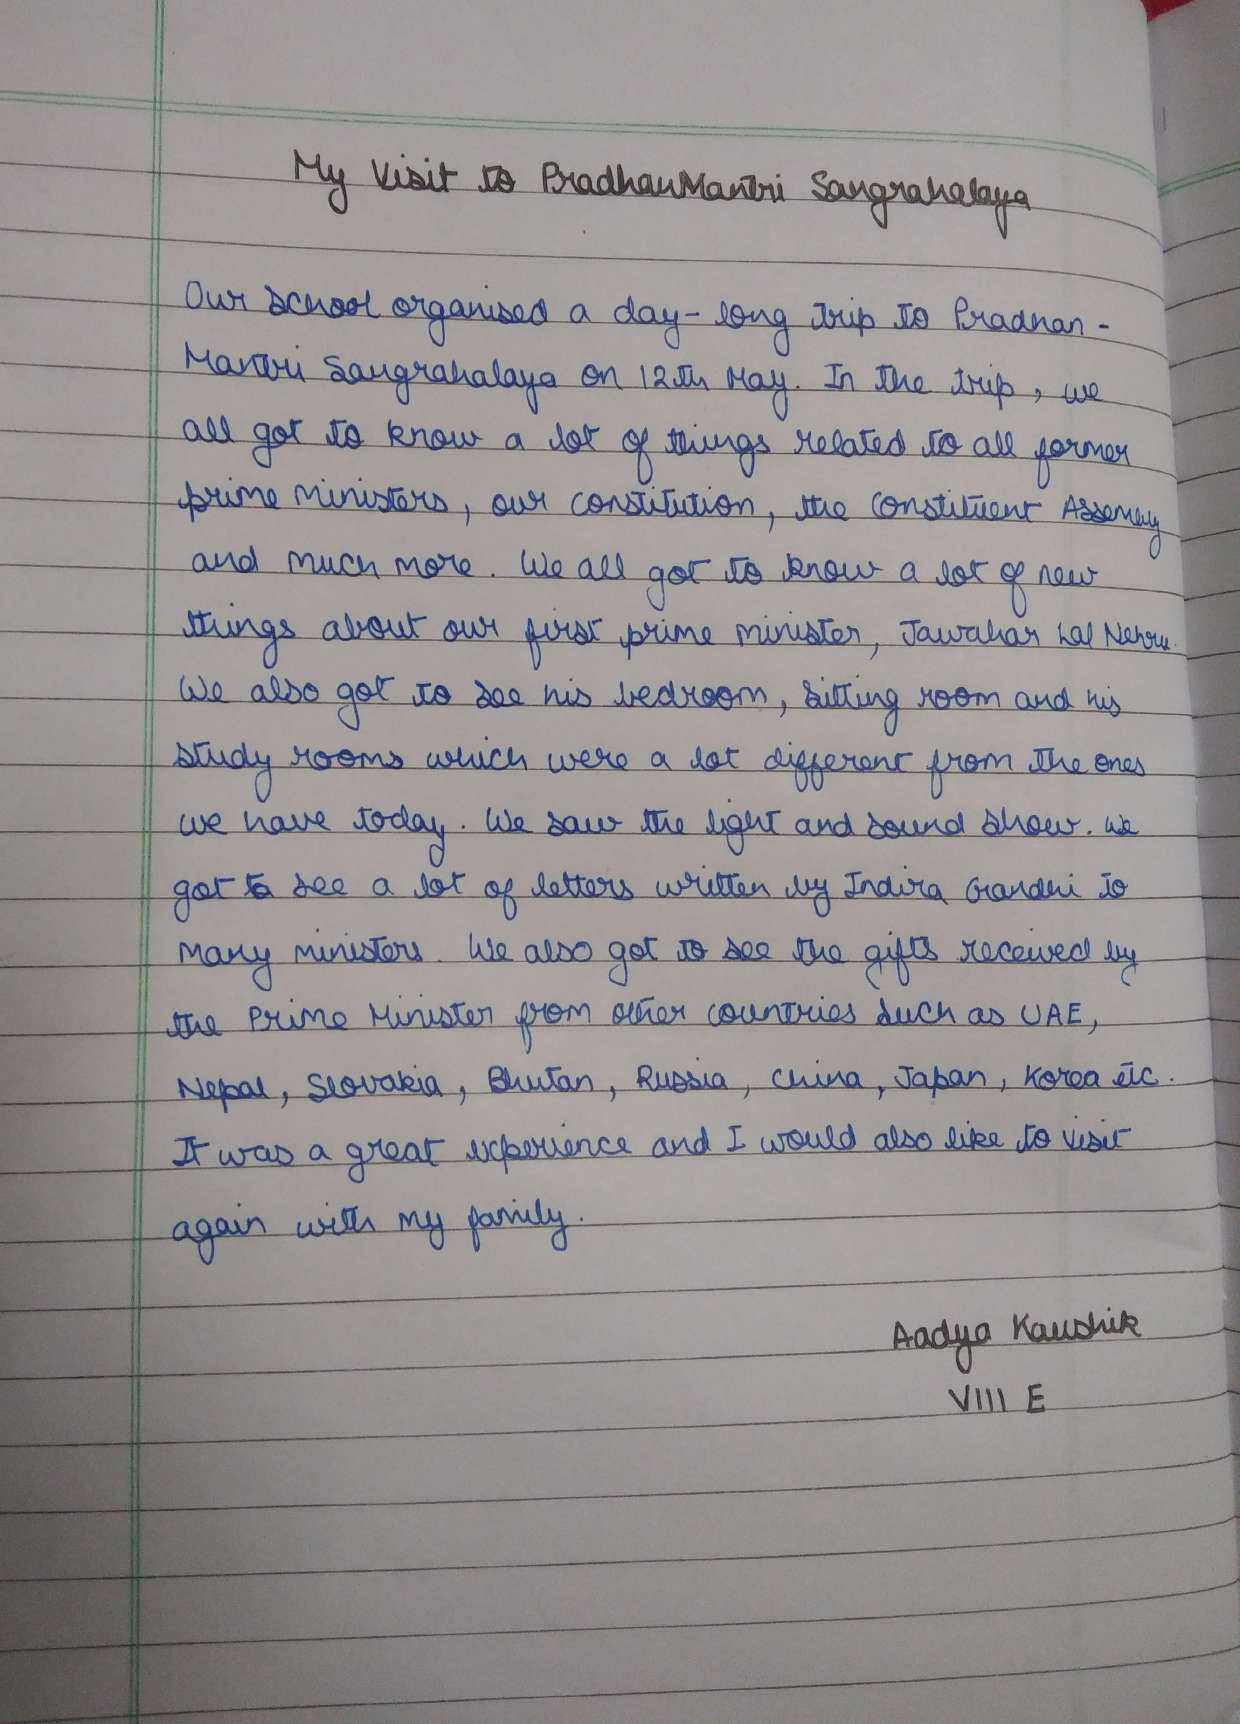 My Visit to PradhanMantri Sangrahalaya
Our school organised a day-long trip to Pradhan-
Mantri Sangrahalaya on 12th May. In the trip, we
all got to know a lot of things related to all former
prime ministers, our constitution, the constituent Assemby
and much more. We all got to know a lot of new
things about our first prime minister, Jawahar Lal Nehru.
We also got to see his bedroom, sitting room and his
study rooms which were a lot different from the ones
we have today. We saw the light and sound show. We
got to see a lot of letters written by Indira Gandhi to
many ministers. We also got to see the gifts received by
the Prime Minister from other countries such as UAE,
Nepal, Slovakia, Bhutan, Russia, China, Japan, Korea etc.
It was a great experience and I would also like to visit
again with my family.
Aadya Kaushik
VIII E